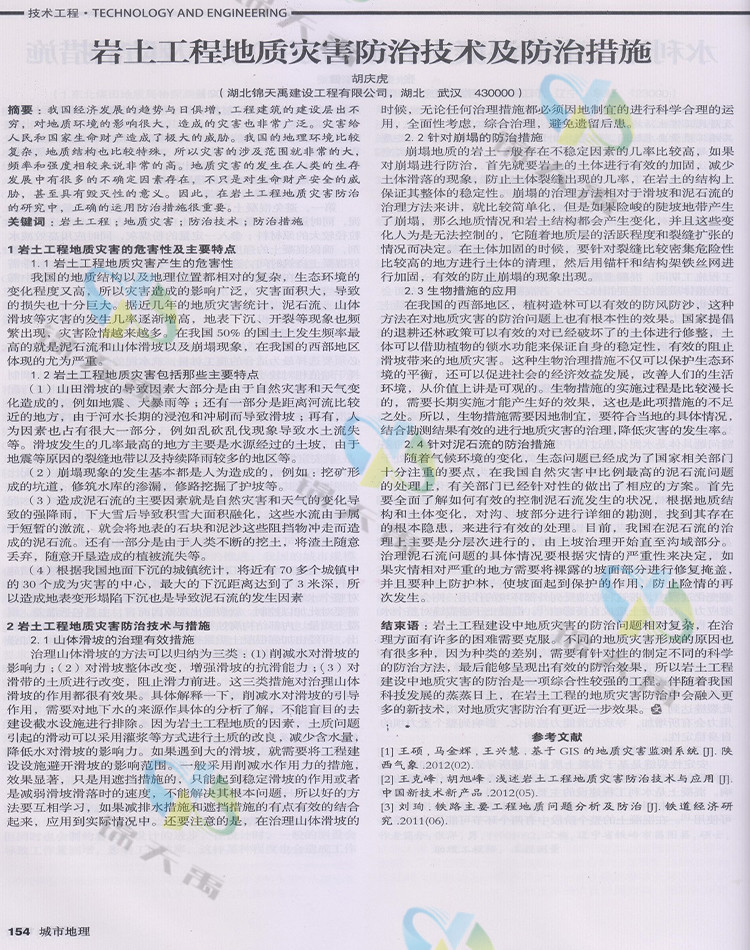 技术工程·TECHNOLOGY AND ENGINEERING
岩土工程地质灾害防治技术及防治措施
胡庆虎
（湖北锦天禹建设工程有限公司，湖北 武汉 430000）
摘要：我国经济发展的趋势与日俱增，工程建筑的建设层出不
穷，对地质环境的影响很大，造成的灾害也非常广泛。灾害给
人民和国家生命财产造成了极大的威胁。我国的地理环境比较
复杂，地质结构也比较特殊，所以灾害的涉及范围就非常的大，
频率和强度相较来说非常的高。地质灾害的发生在人类的生存
发展中有很多的不确定因素存在，不只是对生命财产安全的威
胁，甚至具有毁灭性的意义。因此，在岩土工程地质灾害防治
的研究中，正确的运用防治措施很重要。
关键词：岩土工程；地质灾害；防治技术；防治措施
1 岩土工程地质灾害的危害性及主要特点
1.1 岩土工程地质灾害产生的危害性
我国的地质结构以及地理位置都相对的复杂，生态环境的
变化程度又高，所以灾害造成的影响广泛，灾害面积大，导致
的损失也十分巨大。据近几年的地质灾害统计，泥石流、山体
滑坡等灾害的发生几率逐渐增高，地表下沉、开裂等现象也频
繁出现，灾害险情越来越多。在我国 50% 的国土上发生频率最
高的就是泥石流和山体滑坡以及崩塌现象，在我国的西部地区
体现的尤为严重。
1.2 岩土工程地质灾害包括那些主要特点
（1）山田滑坡的导致因素大部分是由于自然灾害和天气变
化造成的，例如地震、大暴雨等；还有一部分是距离河流比较
近的地方，由于河水长期的浸泡和冲刷而导致滑坡；再有，人
为因素也占有很大一部分，例如乱砍乱伐现象导致水土流失
等。滑坡发生的几率最高的地方主要是水源经过的土坡，由于
地震等原因的裂缝地带以及持续降雨较多的地区等。
（2）崩塌现象的发生基本都是人为造成的，例如：挖矿形
成的坑道，修筑水库的渗漏，修路挖掘了护坡等。
（3）造成泥石流的主要因素就是自然灾害和天气的变化导
致的强降雨，下大雪后导致积雪大面积融化，这些水流由于属
于短暂的激流，就会将地表的石块和泥沙这些阻挡物冲走而造
成的泥石流。还有一部分是由于人类不断的挖土，将渣土随意
丢弃，随意开垦造成的植被流失等。
（4）根据我国地面下沉的城镇统计，将近有 70 多个城镇中
的 30 个成为灾害的中心，最大的下沉距离达到了 3 米深，所
以造成地表变形塌陷下沉也是导致泥石流的发生因素
2 岩土工程地质灾害防治技术与措施
2.1 山体滑坡的治理有效措施
治理山体滑坡的方法可以归纳为三类：(1) 削减水对滑坡的
影响力；（2）对滑坡整体改变，增强滑坡的抗滑能力；（3）对
滑带的土质进行改变，阻止滑力前进。这三类措施对治理山体
滑坡的作用都很有效果。具体解释一下，削减水对滑坡的引导
作用，需要对地下水的来源作具体的分析了解，不能盲目的去
建设截水设施进行排除。因为岩土工程地质的因素，土质问题
引起的滑动可以采用灌浆等方式进行土质的改良，减少含水量，
降低水对滑坡的影响力。如果遇到大的滑坡，就需要将工程建
设设施避开滑坡的影响范围。一般采用削减水作用力的措施，
效果显著，只是用遮挡措施的，只能起到稳定滑坡的作用或者
是减弱滑坡滑落时的速度，不能解决其根本问题，所以好的方
法要互相学习，如果减排水措施和遮挡措施的有点有效的结合
起来，应用到实际情况中。还要注意的是，在治理山体滑坡的
时候，无论任何治理措施都必须因地制宜的进行科学合理的运
用，全面性考虑，综合治理，避免遗留后患。
2.2 针对崩塌的防治措施
崩塌地质的岩土一般存在不稳定因素的几率比较高，如果
对崩塌进行防治，首先就要岩土的土体进行有效的加固，减少
土体滑落的现象，防止土体裂缝出现的几率，在岩土的结构上
保证其整体的稳定性。崩塌的治理方法相对于滑坡和泥石流的
治理方法来讲，就比较简单化，但是如果险峻的陡坡地带产生
了崩塌，那么地质情况和岩土结构都会产生变化，并且这些变
化人为是无法控制的，它随着地质层的活跃程度和裂缝扩张的
情况而决定。在土体加固的时候，要针对裂缝比较密集危险性
比较高的地方进行土体的清理，然后用锚杆和结构架铁丝网进
行加固，有效的防止崩塌的现象出现。
2.3 生物措施的应用
在我国的西部地区，植树造林可以有效的防风防沙，这种
方法在对地质灾害的防治问题上也有根本性的效果。国家提倡
的退耕还林政策可以有效的对已经破坏了的土体进行修整，土
体可以借助植物的锁水功能来保证自身的稳定性，有效的阻止
滑坡带来的地质灾害。这种生物治理措施不仅可以保护生态环
境的平衡，还可以促进社会的经济效益发展，改善人们的生活
环境，从价值上讲是可观的。生物措施的实施过程是比较漫长
的，需要长期实施才能产生好的效果，这也是此项措施的不足
之处。所以，生物措施需要因地制宜，要符合当地的具体情况，
结合勘测结果有效的进行地质灾害的治理,降低灾害的发生率。
2.4 针对泥石流的防治措施
随着气候环境的变化，生态问题已经成为了国家相关部门
十分注重的要点，在我国自然灾害中比例最高的泥石流问题
的处理上，有关部门已经针对性的做出了相应的方案。首先
要全面了解如何有效的控制泥石流发生的状况，根据地质结
构和土体变化，对沟、坡部分进行详细的勘测，找到其存在
的根本隐患，来进行有效的处理。目前，我国在泥石流的治
理上主要是分层次进行的，由上坡治理开始直至沟域部分。
治理泥石流问题的具体情况要根据灾情的严重性来决定，如
果灾情相对严重的地方需要将裸露的坡面部分进行修复掩盖，
并且要种上防护林，使坡面起到保护的作用，防止险情的再
次发生。
结束语：岩土工程建设中地质灾害的防治问题相对复杂，在治
理方面有许多的困难需要克服。不同的地质灾害形成的原因也
有很多种，因为种类的差别，需要有针对性的制定不同的科学
的防治方法，最后能够呈现出有效的防治效果，所以岩土工程
建设中地质灾害的防治是一项综合性较强的工程，伴随着我国
科技发展的蒸蒸日上，在岩土工程的地质灾害防治中会融入更
多的新技术，对地质灾害防治有更近一步效果。
参考文献
[1] 王硕，马金辉，王兴慧．基于 GIS 的地质灾害监测系统 [J]．陕
西气象．2012(02)．
[2] 王克峰，胡旭峰．浅述岩土工程地质灾害防治技术与应用 [J]．
中国新技术新产品．2012(05)．
[3] 刘珣．铁路主要工程地质问题分析及防治 [J]．铁道经济研
究．2011(06)．
154 城市地理
锦天禹